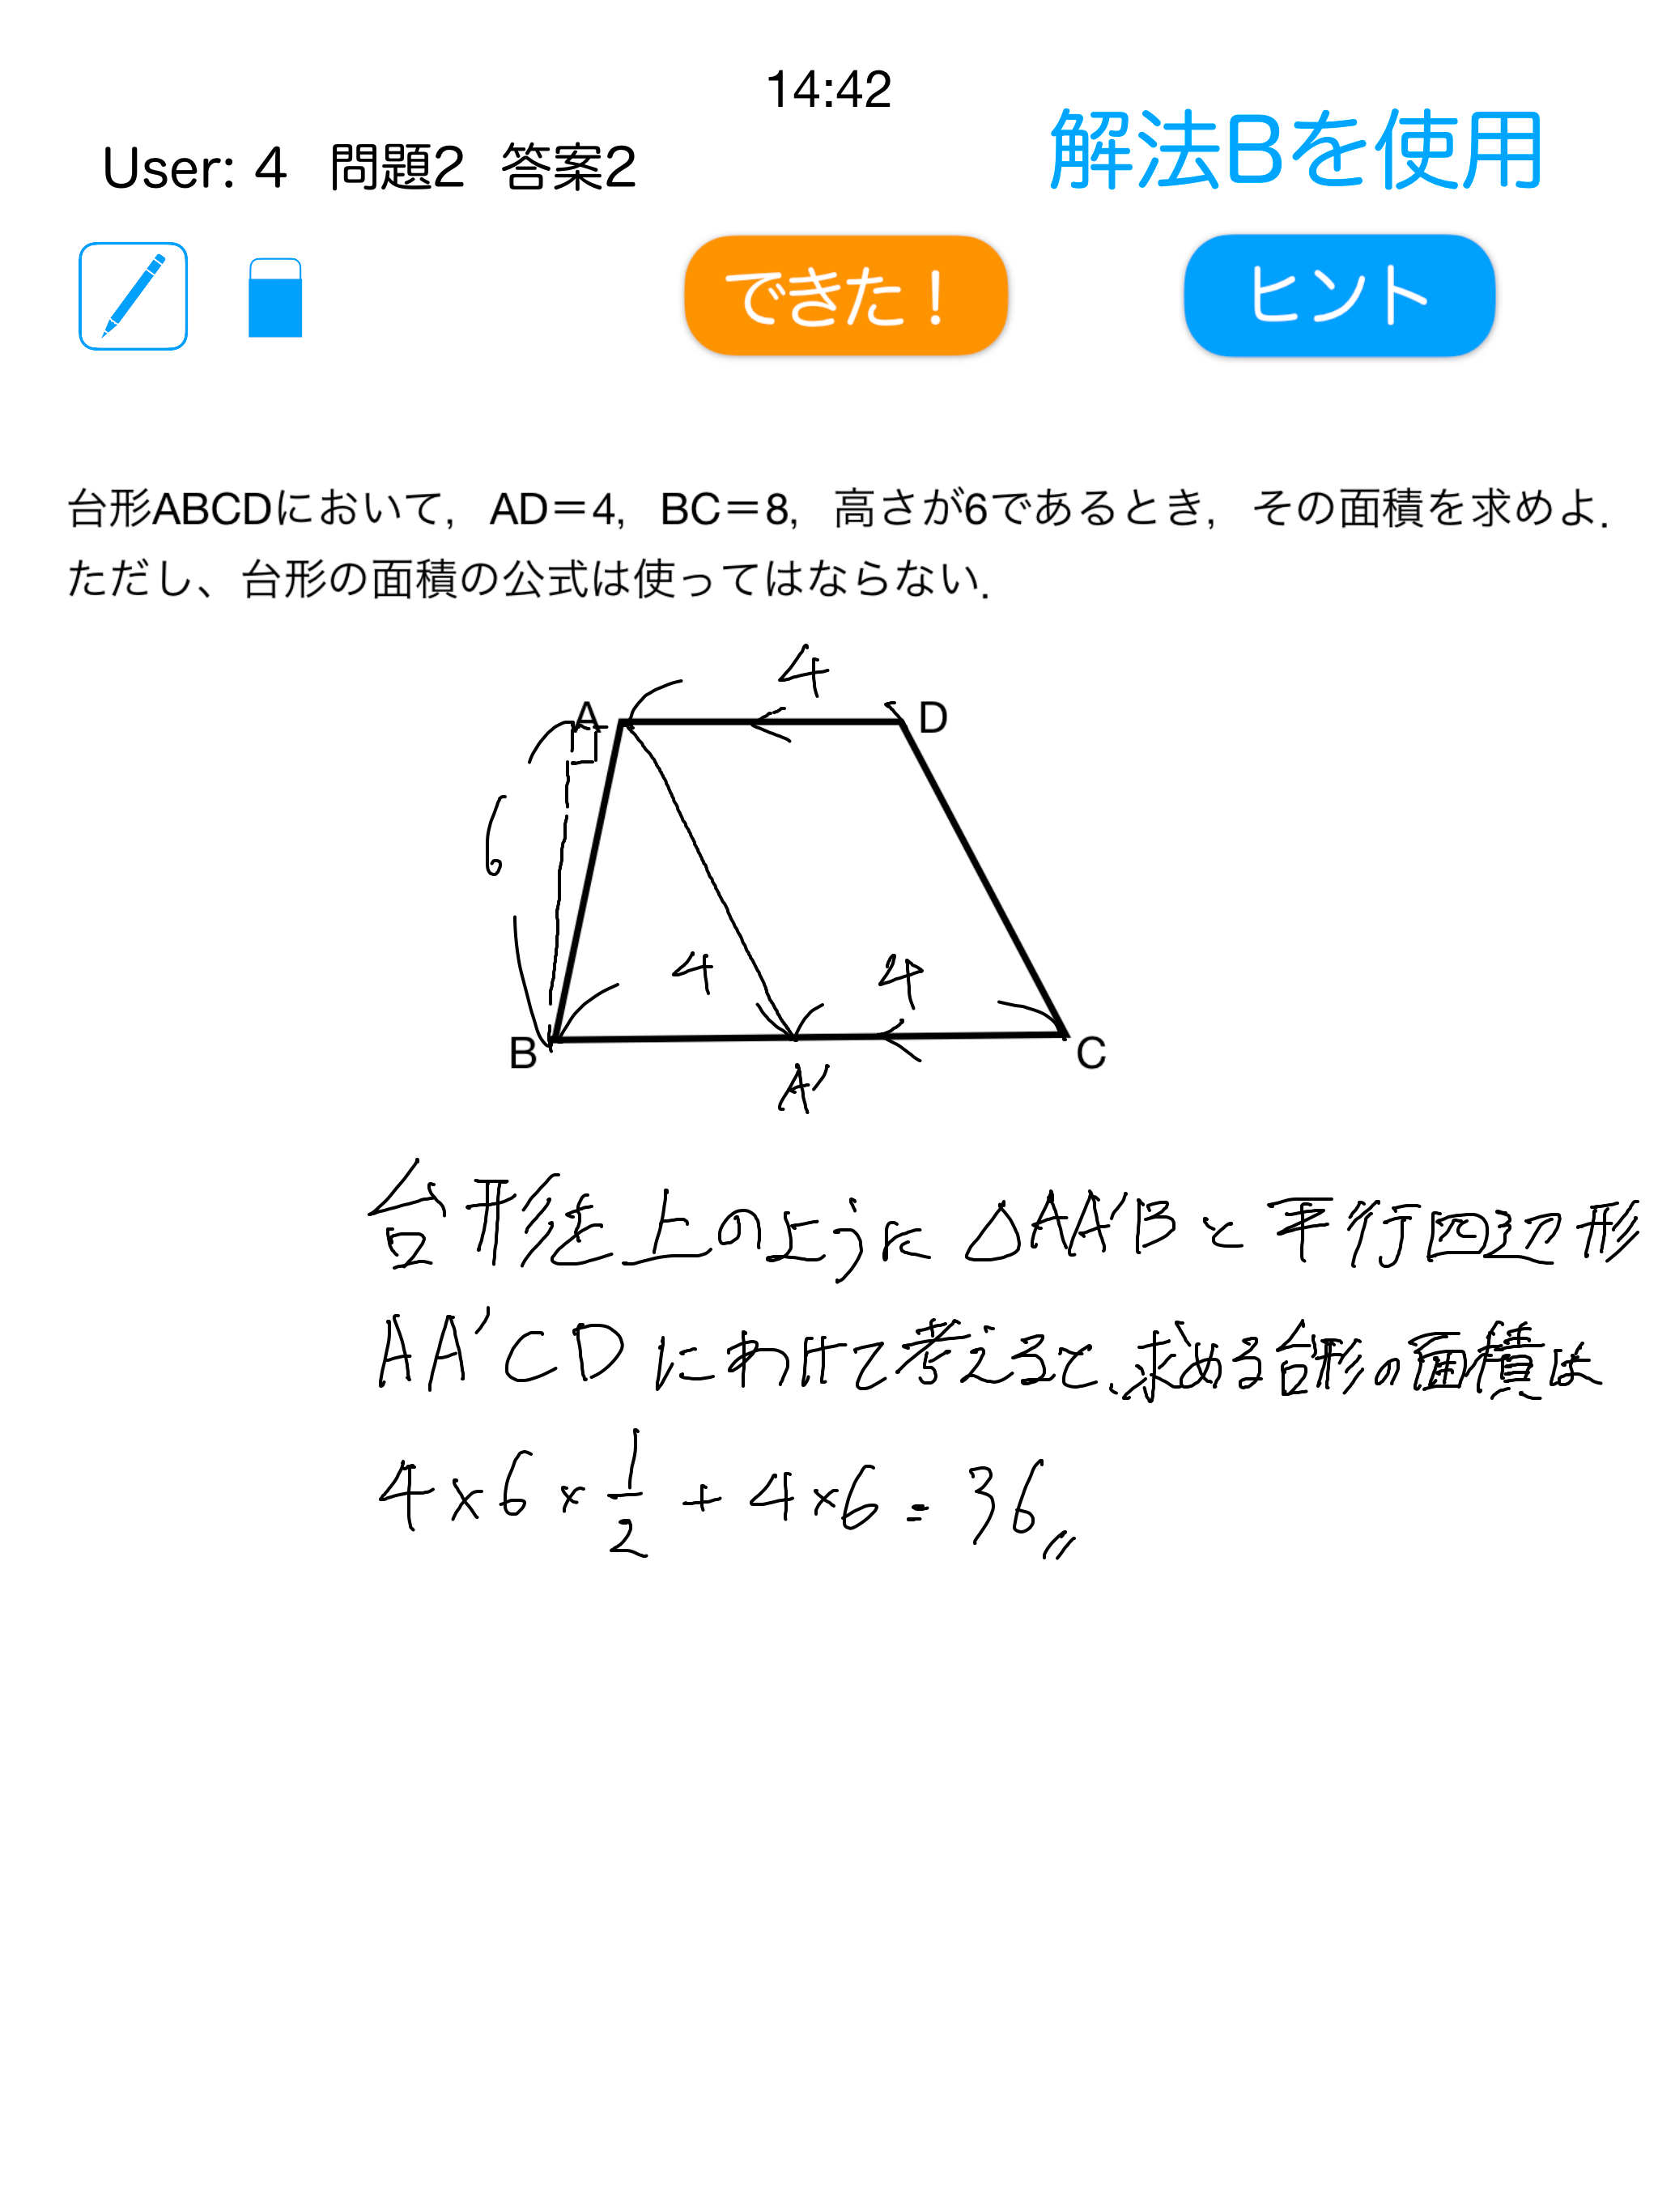 14:42
解法Bを使用
User: 4 問題2 答案2
できた！
ヒント
台形ABCDにおいて，AD＝4，BC＝8，高さが6であるとき，その面積を求めよ．
ただし、台形の面積の公式は使ってはならない．
4
A
D
6
4
4
B
C
A'
台形を上のように △AA'Bと平行四辺形
AA'CDにわけて考えると、求める台形の面積は
4×6×1/2+4×6=36〃